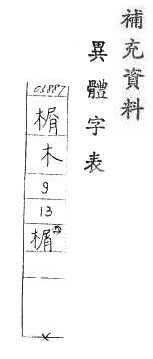 補充資料
異體字表
01887
楣
木
9
13
楣